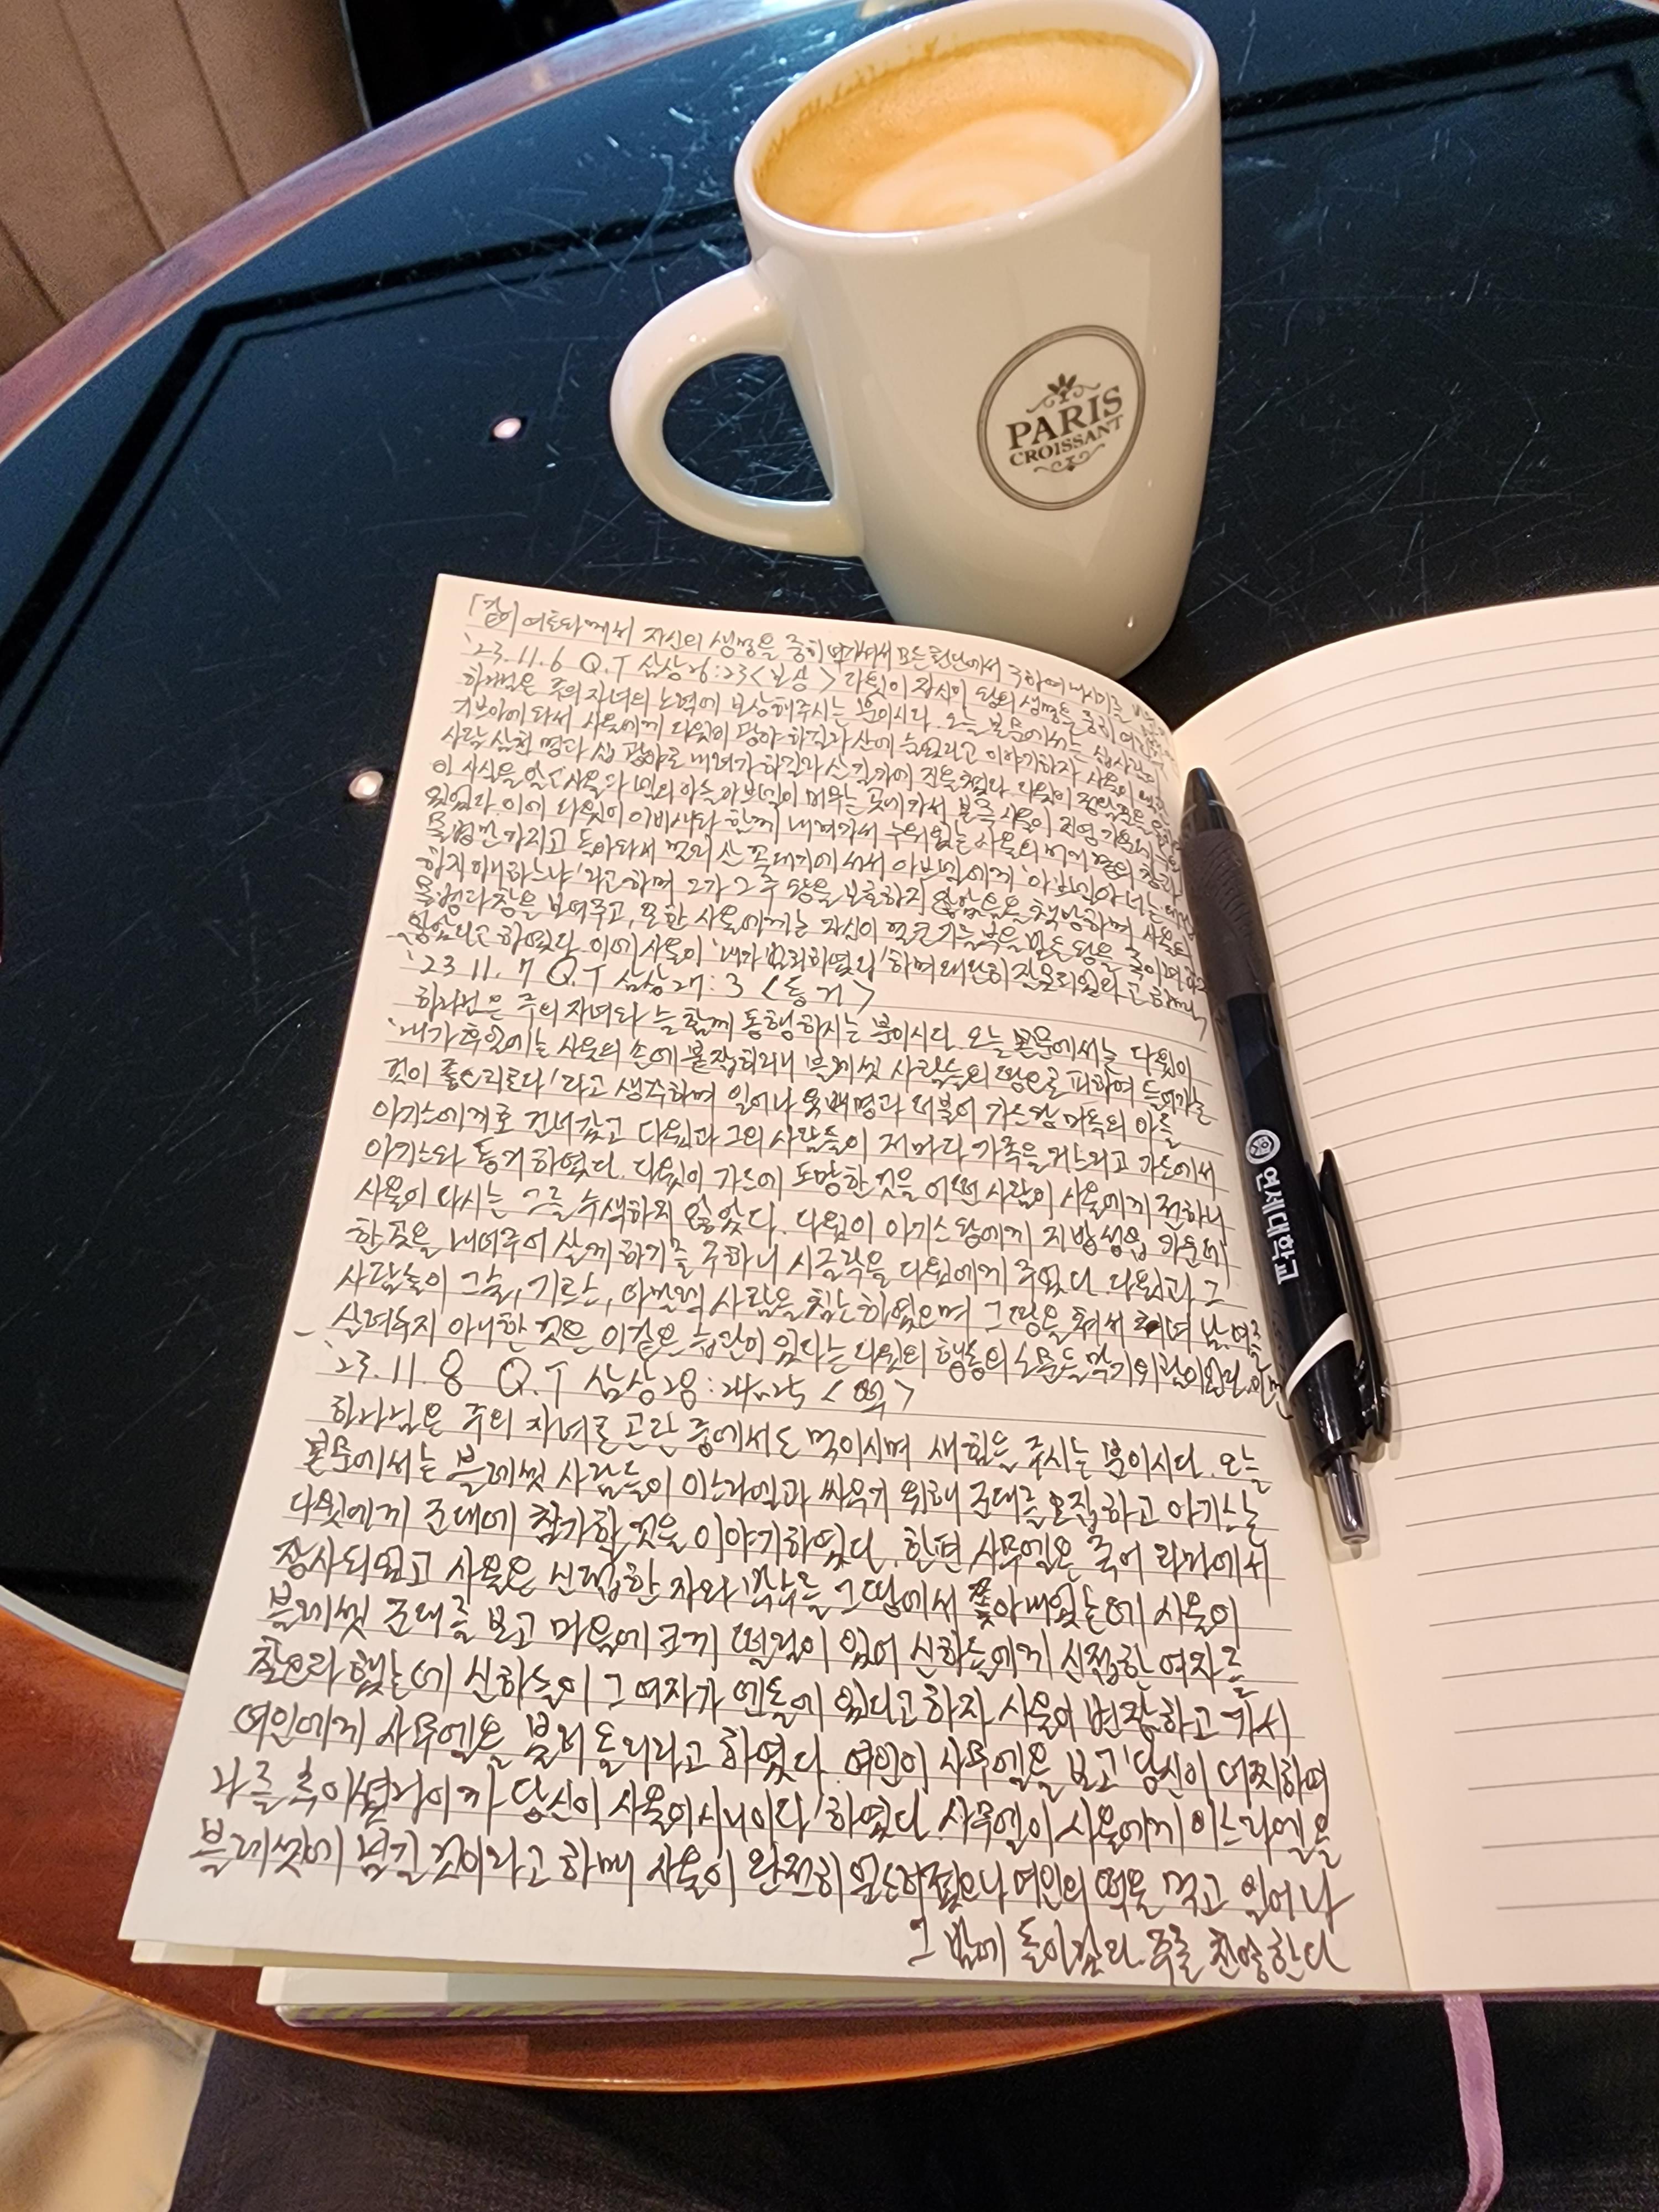 PARIS
CROISSANT
연세대학교
같이 여호와께서 자신의 생명을 중히 여기셔서 모든 환난에서 구하여 내시기를
'23.11.6 Q.T 삼상26:23 <보상> 다윗이 자신이 왕의 생명을 중히 여긴
하나님은 주의 자녀의 노력에 보상해주시는 분이시다. 오늘 본문에서는 십사람이
기브아에 와서 사울에게 다윗이 광야 하길라 산에 숨었다고 이야기하자 사울이 택한
사람 삼천 명과 십 광야로 내려가 하길라 산 길가에 진을 쳤다. 다윗이 정탐꾼을
이 사실을 알고 사울과 넬의 아들 아브넬이 머무는 곳에 가서 본즉 사울이 진영 가운데
있었다. 이에 다윗이 아비새와 함께 내려가서 누워있는 사울의 머리 곁의 창과
물병만 가지고 돌아와서 건너 산 꼭대기에 서서 아브넬에게 '아브넬아 너는 대답
하지 아니하느냐'라고 하며 그가 그 주 왕을 보호하지 않았음을 책망하며 사울의
물병과 창을 보여주고, 또한 사울에게는 자신이 기름 부음 받은 왕을 죽이려 하지
않았다고 하였다. 이에 사울이 '내가 범죄하였다' 하며 대단히 잘못되었다고 하며,
'23.11.7 Q.T 삼상27:3 <동거>
하나님은 주의 자녀와 늘 함께 동행하시는 분이시다. 오늘 본문에서는 다윗이
'내가 후일에는 사울의 손에 붙잡히리니 블레셋 사람들의 땅으로 피하여 들어가는
것이 좋으리로다'라고 생각하며 일어나 육백명과 더불어 가드왕 마옥의 아들
아기스에게로 건너갔고 다윗과 그의 사람들이 저마다 가족을 거느리고 가드에서
아기스와 동거하였다. 다윗이 가드에 도망한 것을 어떤 사람이 사울에게 전하니
사울이 다시는 그를 수색하지 않았다. 다윗이 아기스 왕에게 지방 성읍 가운데
한 곳을 내려주어 살게 하기를 구하니 시글락을 다윗에게 주었다. 다윗과 그
사람들이 그술, 기르스, 아말렉 사람을 침노하였으며 그 땅을 쳐서 남녀를
살려두지 아니한 것은 이같은 습관이 있다는 다윗의 행동의 소문을 막기 위함이었다.
'23.11.8 Q.T 삼상28:24,25 <떡>
하나님은 주의 자녀를 곤란 중에서도 먹이시며 새 힘을 주시는 분이시다. 오늘
본문에서는 블레셋 사람들이 이스라엘과 싸우기 위해 군대를 모집하고 아기스는
다윗에게 군대에 참가할 것을 이야기하였다. 한편 사무엘은 죽어 라마에서
장사되었고 사울은 신접한 자와 박수를 그 땅에서 쫓아내었는데 사울이
블레셋 군대를 보고 마음에 크게 떨림이 있어 신하들에게 신접한 여자를
찾으라 했는데 신하들이 그 여자가 엔돌에 있다고 하자 사울이 변장하고 가서
여인에게 사무엘을 불러 올리라고 하였다. 여인이 사무엘을 보고 '당신이 어찌하여
나를 속이셨나이까 당신이 사울이시니이다' 하였다. 사무엘이 사울에게 이스라엘을
블레셋에 넘길 것이라고 하매 사울이 완전히 엎드러졌으나 여인의 떡을 먹고 일어나
그 밤에 돌아갔다. 주를 찬양한다